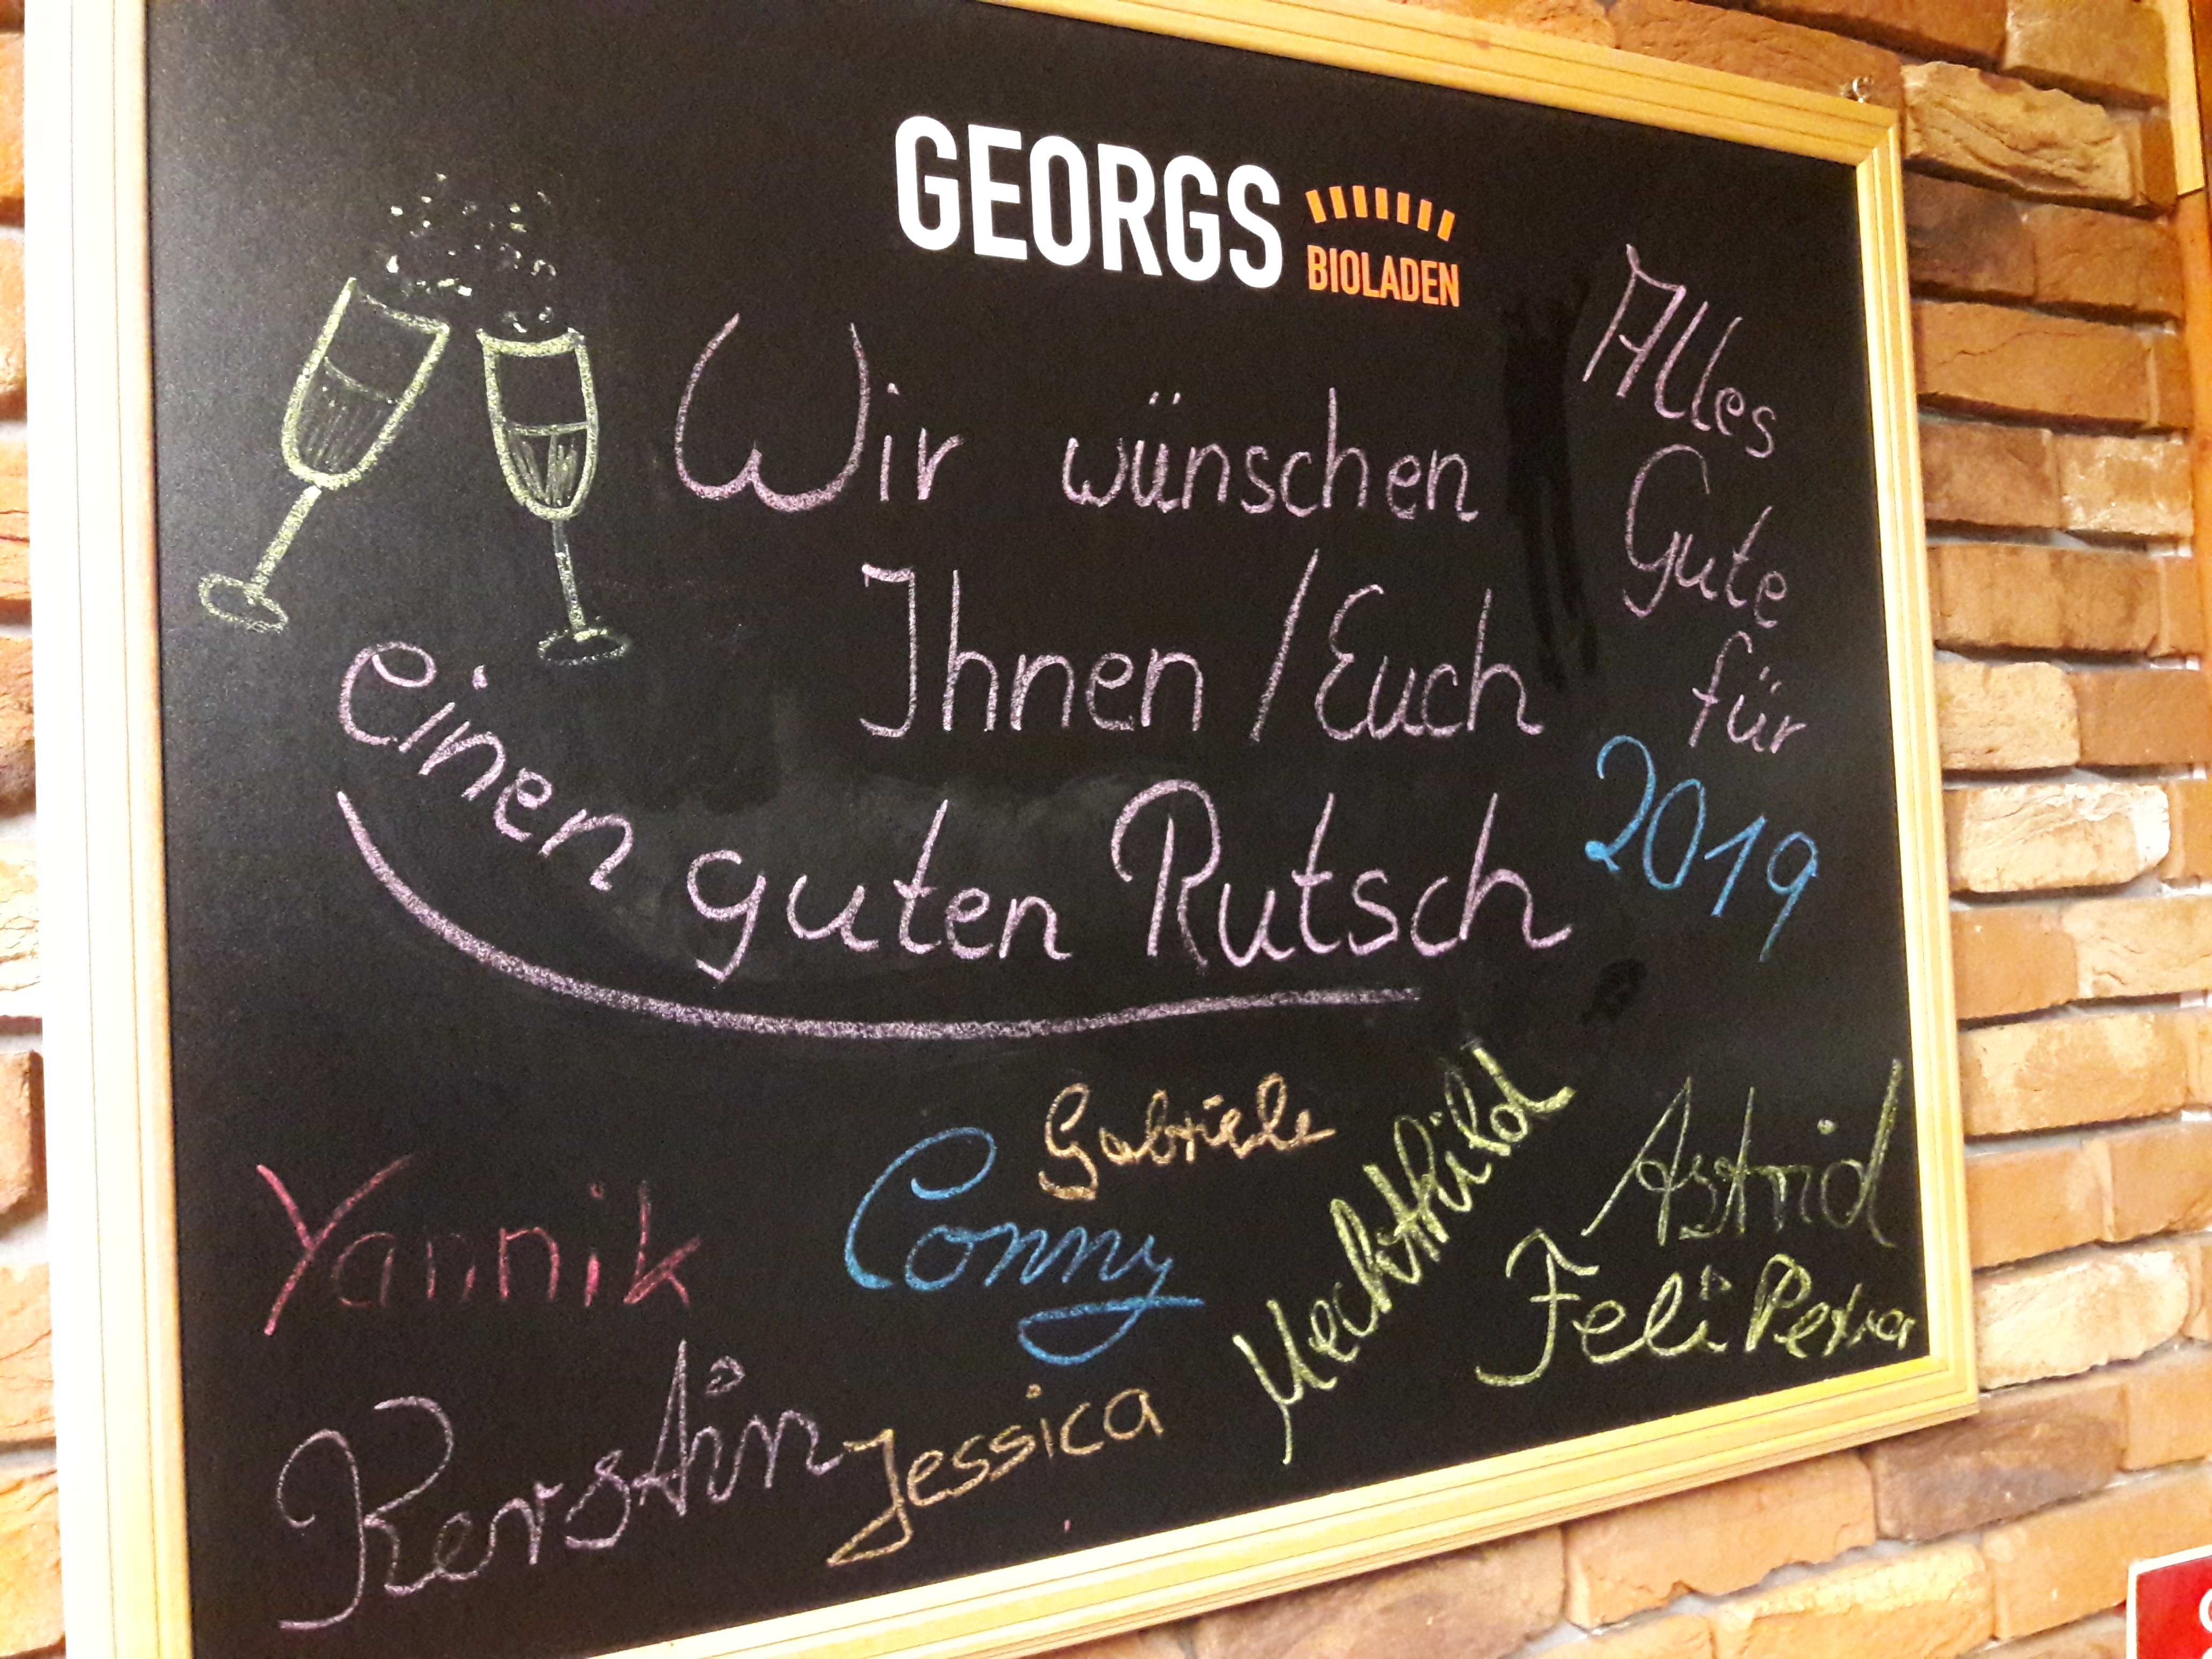 GEORGS
BIOLADEN
Wir wünschen
Ihnen / Euch
einen guten Rutsch
Alles
Gute
für
2019
Gabriele
Yannik
Conny
Mechthild
Astrid
Feli Petra
Kerstin
Jessica